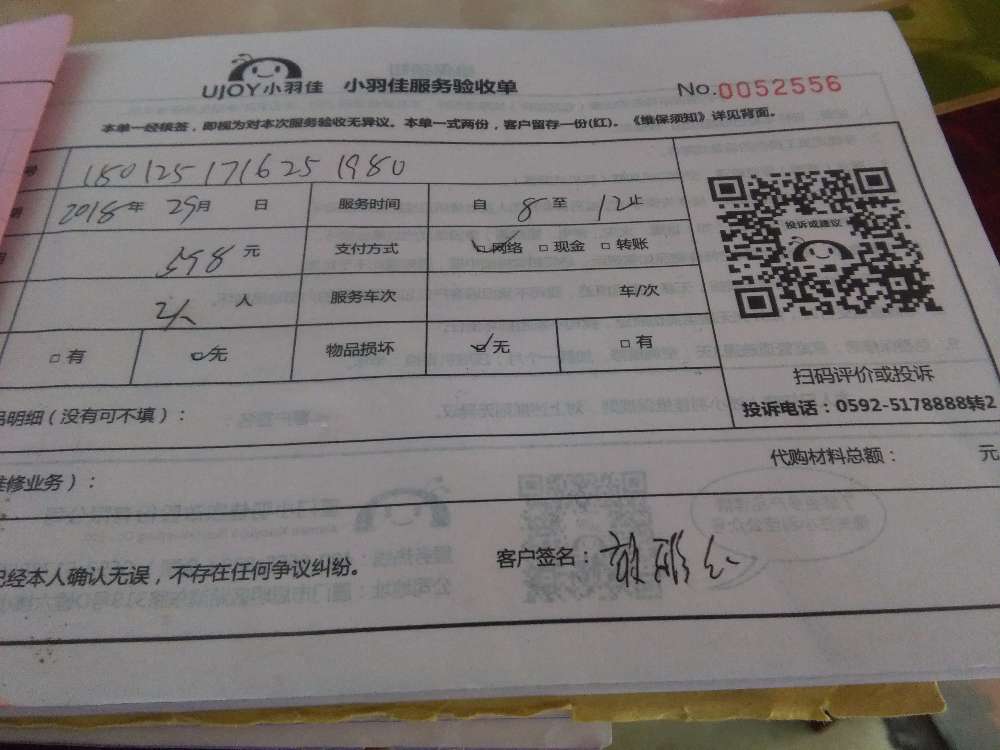 UJOY小羽佳 小羽佳服务验收单 No.0052556
本单一经续签，即视为对本次服务验收无异议。本单一式两份，客户留存一份(红)。《维保须知》详见背面。
号 180125171625 1980
2018年 29月 日 服务时间 自 8 至 12止
598 元 支付方式 网络 现金 转账
2人 人 服务车次 车/次
有 无 物品损坏 无 有
投诉或建议
扫码评价或投诉
投诉电话：0592-5178888转2
明细（没有可不填）：
维修业务）： 代购材料总额： 元
已经本人确认无误，不存在任何争议纠纷。 客户签名：